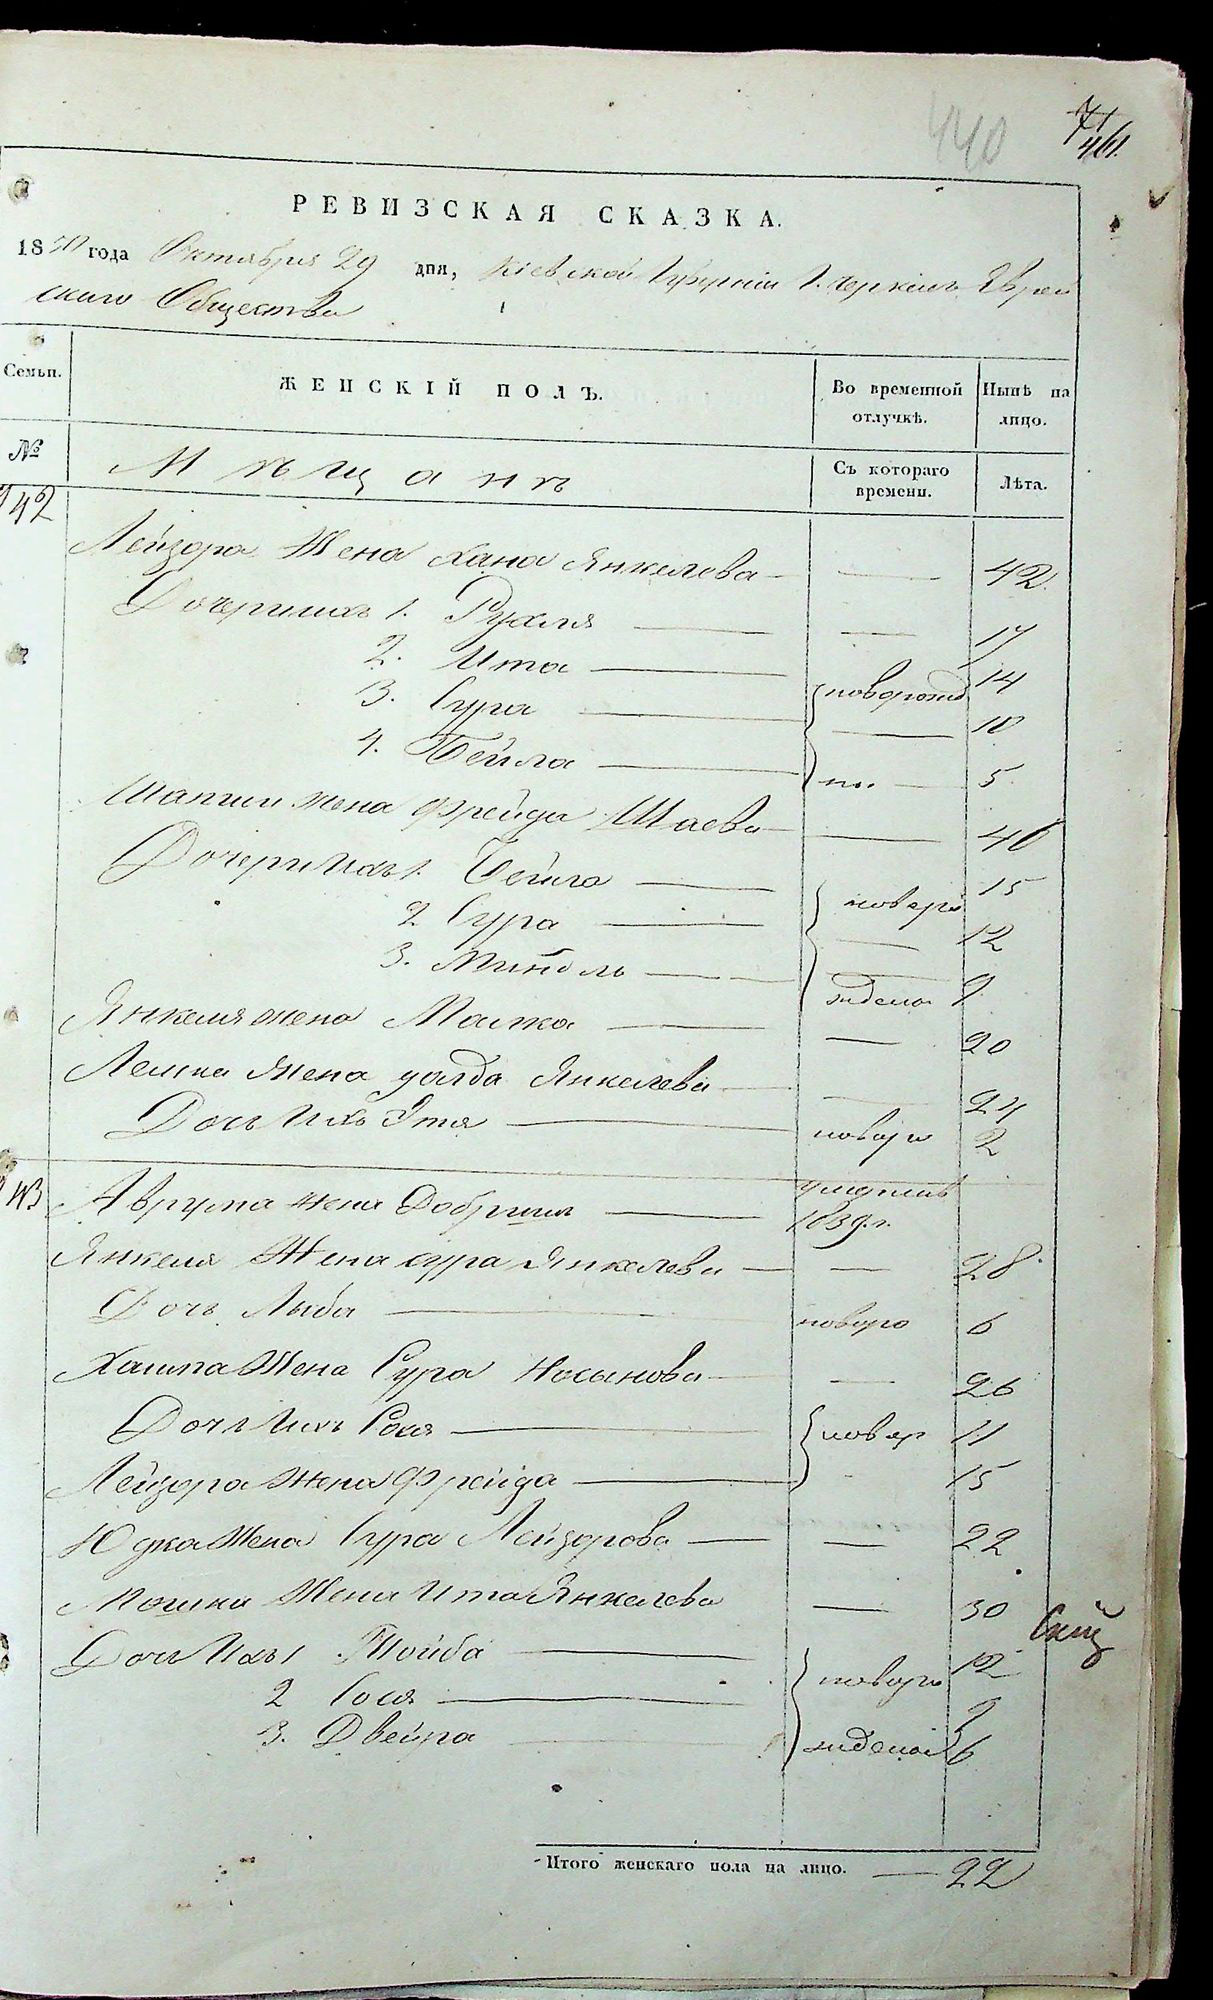 440
71
461.
РЕВИЗСКАЯ СКАЗКА.
1850 года Октября 29 дня, Кіевской Губерніи г. Черкасъ Еврей
скаго Общества
Семьи. ЖЕНСКІЙ ПОЛЪ. Во временной отлучкѣ. Нынѣ на лицо.
№ Мѣщанъ Съ котораго времени. Лѣта.
142
Лейзора Жена Хана Янкелева — — 42
Дочери ихъ 1. Рухля — — 17
2. Ита — новорожд 14
3. Сура — — 10
4. Бейла — ны. — 5
Жена Фрейда Шаева — — 46
Дочери Ихъ 1. Бейла — новоро 15
2 Сура — — 12
3. Миндль — жденыя 9
Янкеля жена Малка — — 20
Лейзора Жена Голда Янкелева — — 24
Дочь Ихъ Этя — новоро 2
143 Аврума жена Добрыш — умершая
1839.г.
Янкеля Жена Сура Янкелева — — 28
Дочь Лыба — новоро 6
Хаима Жена Сура Носынова — — 26
Дочь Ихъ Рося — новор 11
Лейзора Жена Фрейда — 15
Юдка Жена Сура Лейзорова — — 22
Мошка Жена Ита Янкелева — 30
Дочь Ихъ 1. Тойба — новоро 12
2 Сося — 9
3. Двейра — жденыя 6
Итого женскаго пола на лицо. — 22